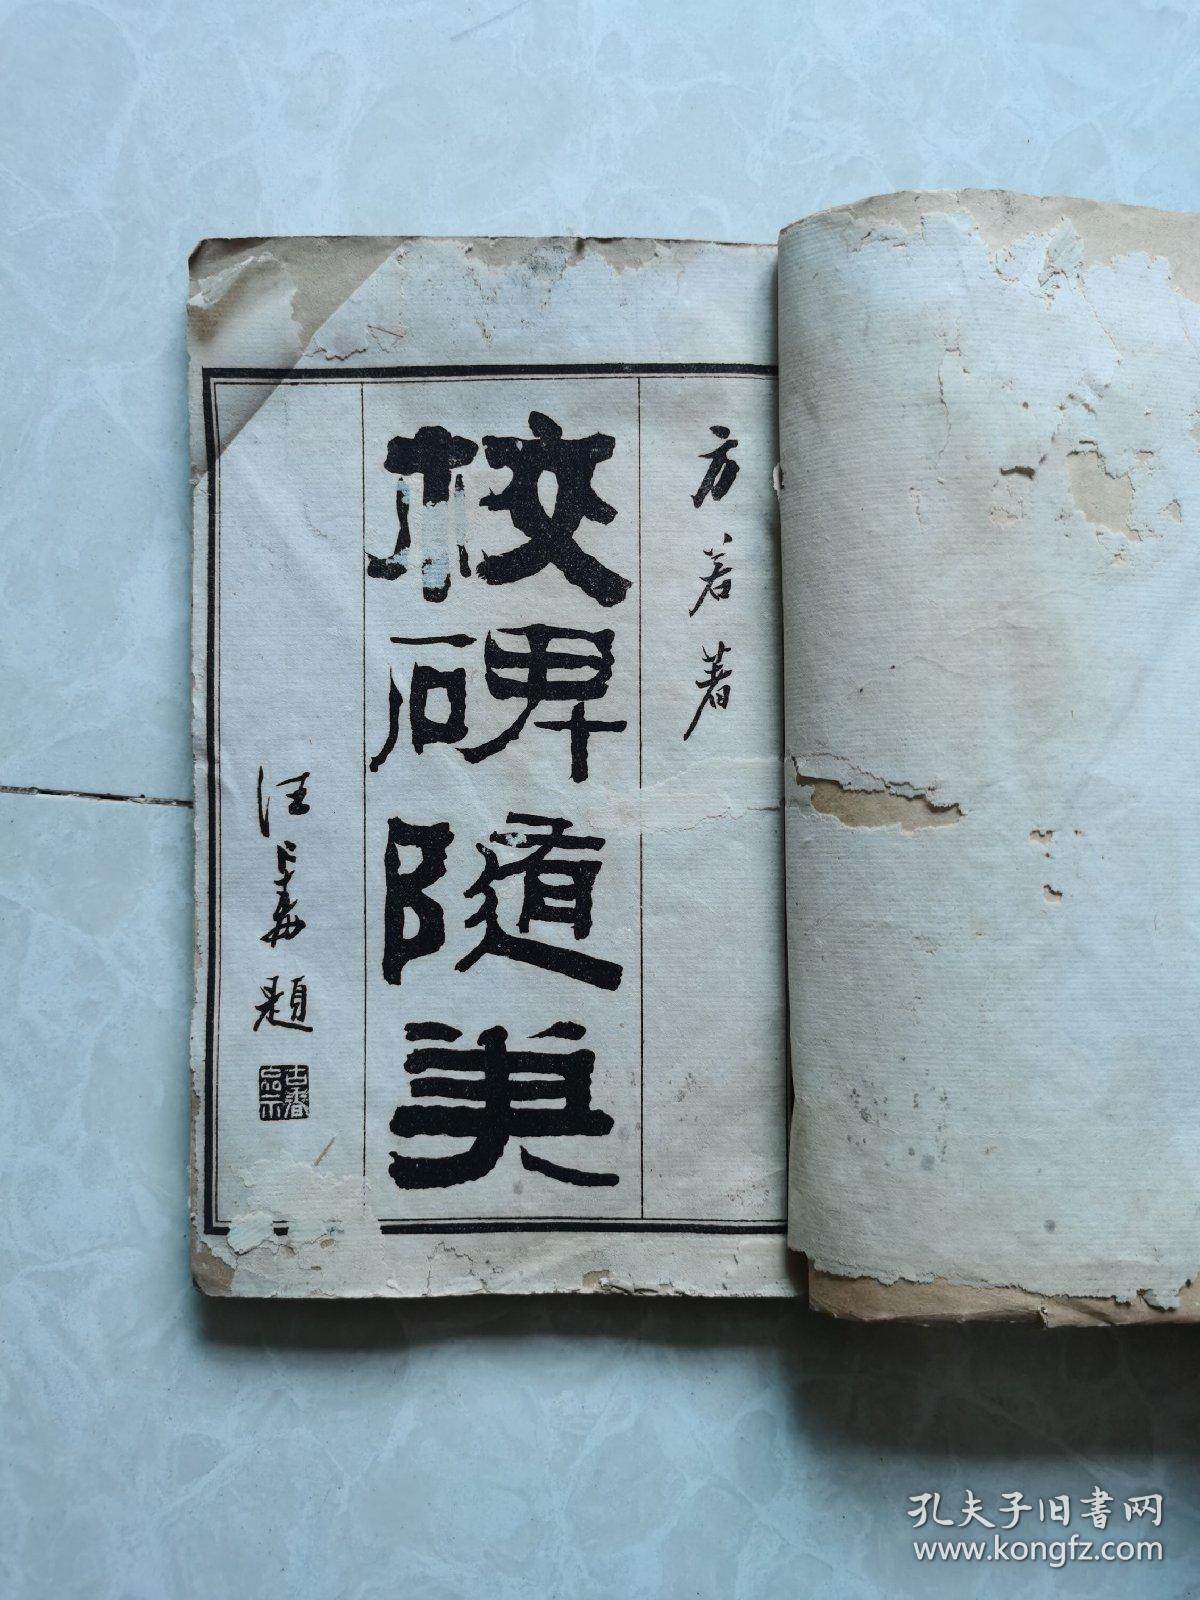 方若著
校碑隨筆
汪題
孔夫子旧书网
www.kongfz.com